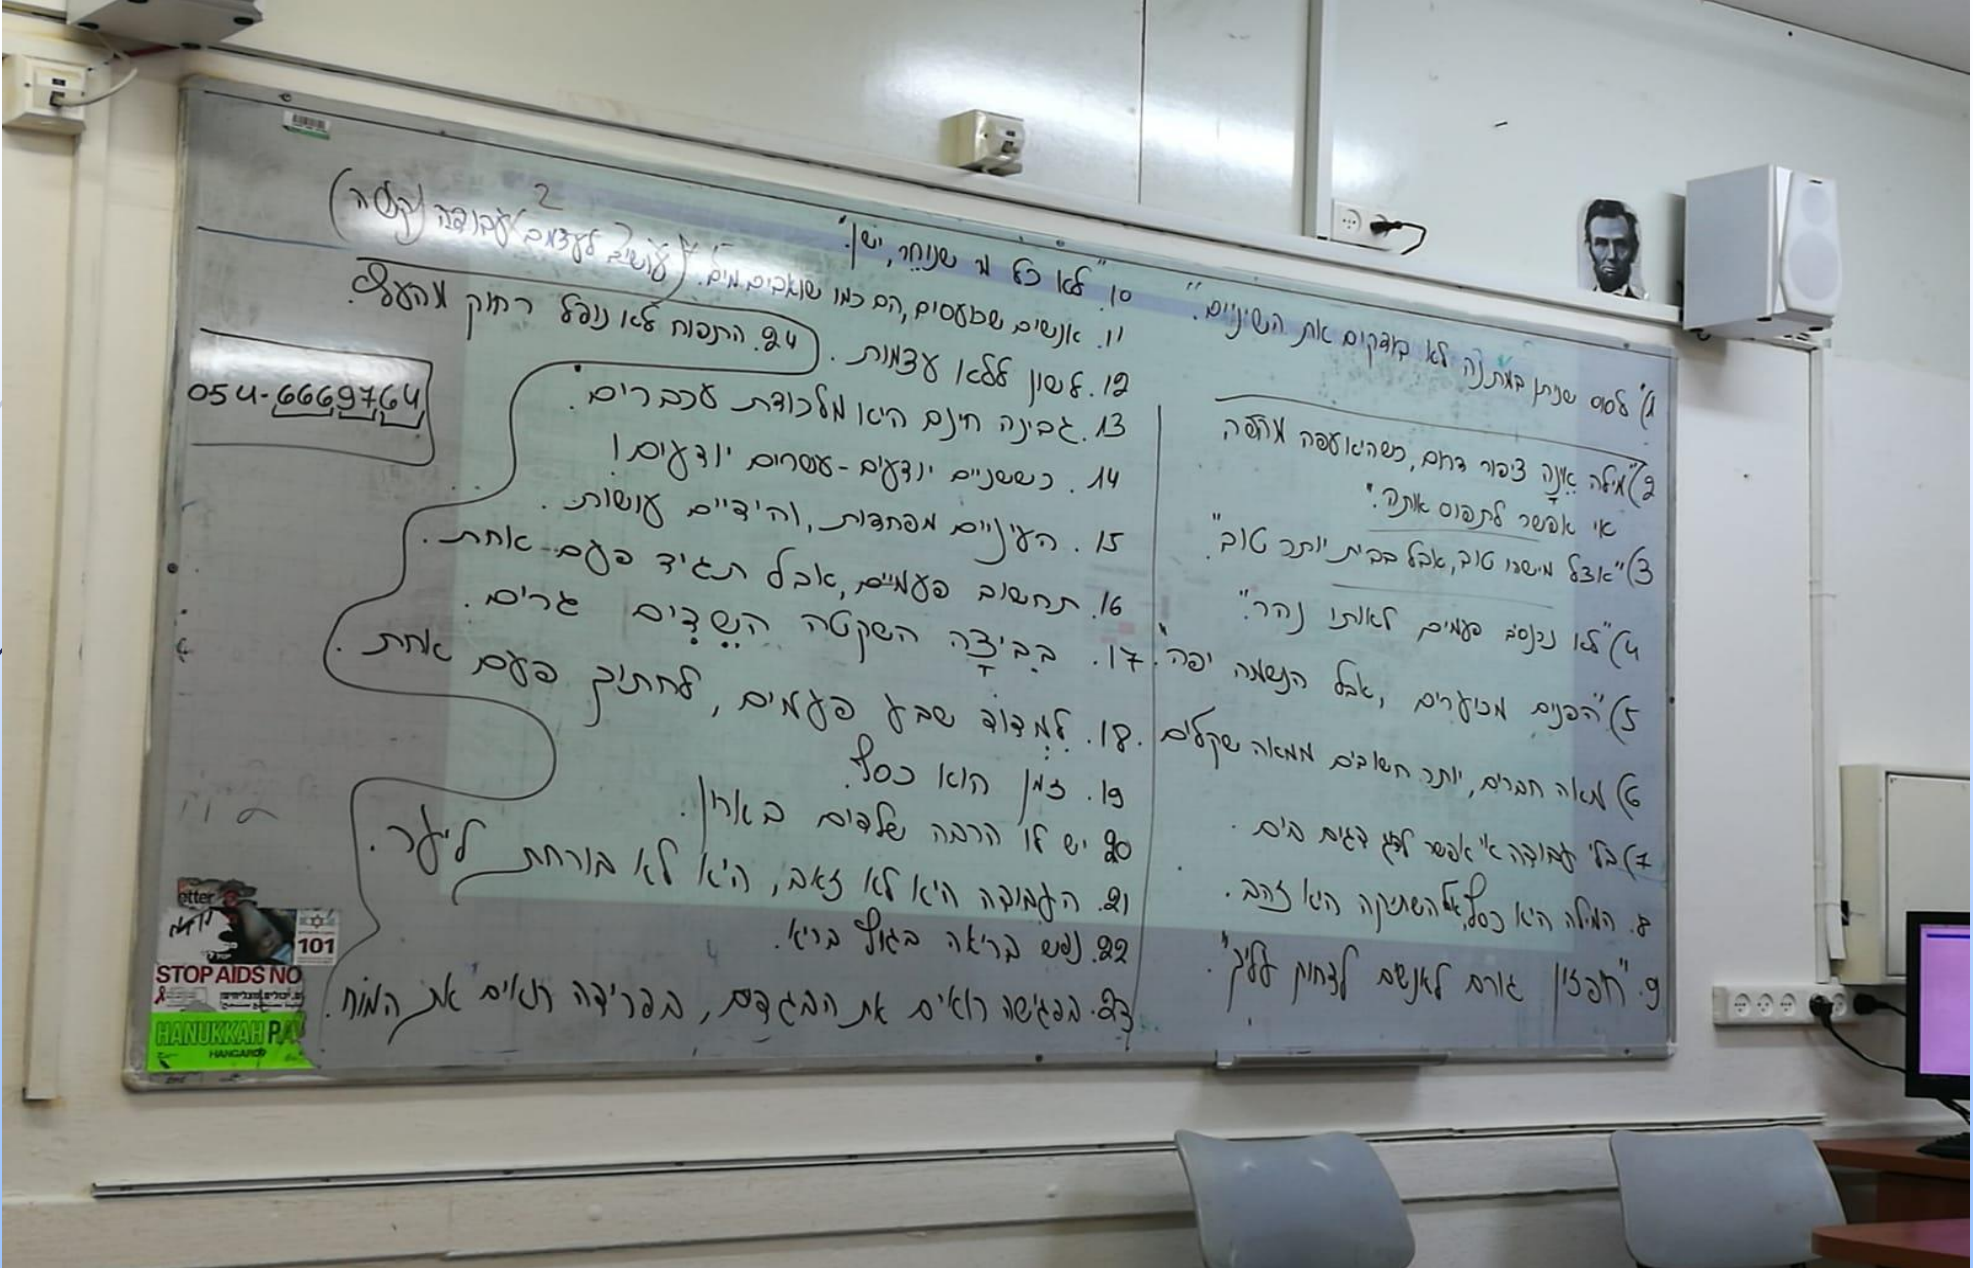 1) "לסוס שניתן במתנה לא בודקים את השיניים."
2) "מילה אינָה ציפור דרום, כשהיא עפה מהפה
אי אפשר לתפוס אותה."
3) "אצל מישהו טוב, אבל בבית יותר טוב".
4) "לא נכנסים פעמים לאותו נהר".
5) "הפנים מכוערים, אבל הנשמה יפה".
6) מאה חברים, יותר חשובים ממאה שקלים.
7) בלי עבודה אי אפשר לדוג דגים בים.
8. המילה היא כסף, אל השתיקה היא זהב.
9. "חפזון גורם לאנשים לצחוק עליך".
10. "לא כל מי שנוחר, ישן".
11. אנשים שכועסים, הם כמו שואבים מים. (עושים לעצמם עבודה קשה) 2
12. לשון ללא עצמות.
13. גבינה חינם היא מלכודת עכברים.
14. כששניים יודעים - עשרים יודעים!
15. העיניים מפחדות, והידיים עושות.
16. תחשוב פעמיים, אבל תגיד פעם אחת.
17. בביצָה השקטה השֵדִים גרים.
18. למדוד שבע פעמים, לחתוך פעם אחת.
19. זמן הוא כסף.
20. יש לו הרבה שלדים בארון.
21. העבודה היא לא זאב, היא לא בורחת ליער.
22. נפש בריאה בגוף בריא.
23. בפגישה רואים את הבגדים, בפרידה רואים את המוח.
24. התפוח לא נופל רחוק מהעץ.
054-6669764
otter
101
STOP AIDS NO
HANUKKAH PA
HANGAR09